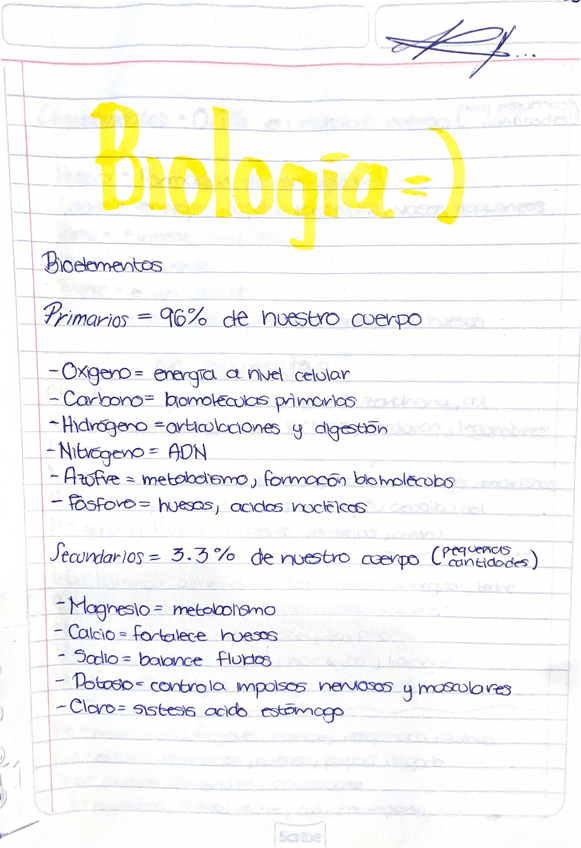 Biología =)
Bioelementos
Primarios = 96% de nuestro cuerpo
- Oxígeno = energía a nivel celular
- Carbono = biomoléculas primarias
- Hidrógeno = articulaciones y digestión
- Nitrógeno = ADN
- Azufre = metabolismo, formación biomoléculas
- Fósforo = huesos, acidos nucléicos
Secundarios = 3.3% de nuestro cuerpo (pequeñas cantidades)
- Magnesio = metabolismo
- Calcio = fortalece huesos
- Sodio = balance fluidos
- Potasio = controla impulsos nerviosos y musculares
- Cloro = sistesis acido estómago
Scribe